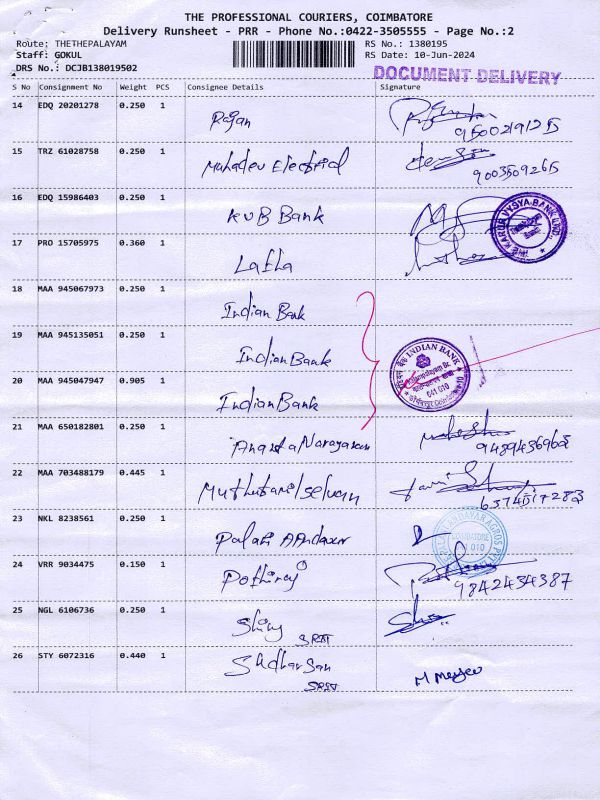 THE PROFESSIONAL COURIERS, COIMBATORE
Delivery Runsheet - PRR - Phone No.:0422-3505555 - Page No.:2
Route: THETHEPALAYAM RS No.: 1380195
Staff: GOKUL RS Date: 10-Jun-2024
DRS No.: DCJB138019502
DOCUMENT DELIVERY
S No Consignment No Weight PCS Consignee Details Signature
14 EDQ 20201278 0.250 1 Rajan
15 TRZ 61028758 0.250 1 Mahadev Electrical
9003509265
16 EDQ 15986403 0.250 1 KVB Bank
THE KARUR VYSYA BANK LTD.
17 PRO 15705975 0.360 1
18 MAA 945067973 0.250 1 Indian Bank
19 MAA 945135051 0.250 1 Indian Bank
INDIAN BANK
641 010
20 MAA 945047947 0.905 1 Indian Bank
21 MAA 650182801 0.250 1 Ananta Narayanan
22 MAA 703488179 0.445 1
23 NKL 8238561 0.250 1 Palani Andavar
COIMBATORE
24 VRR 9034475 0.150 1 Pothiraj
9842434387
25 NGL 6106736 0.250 1
26 STY 6072316 0.440 1